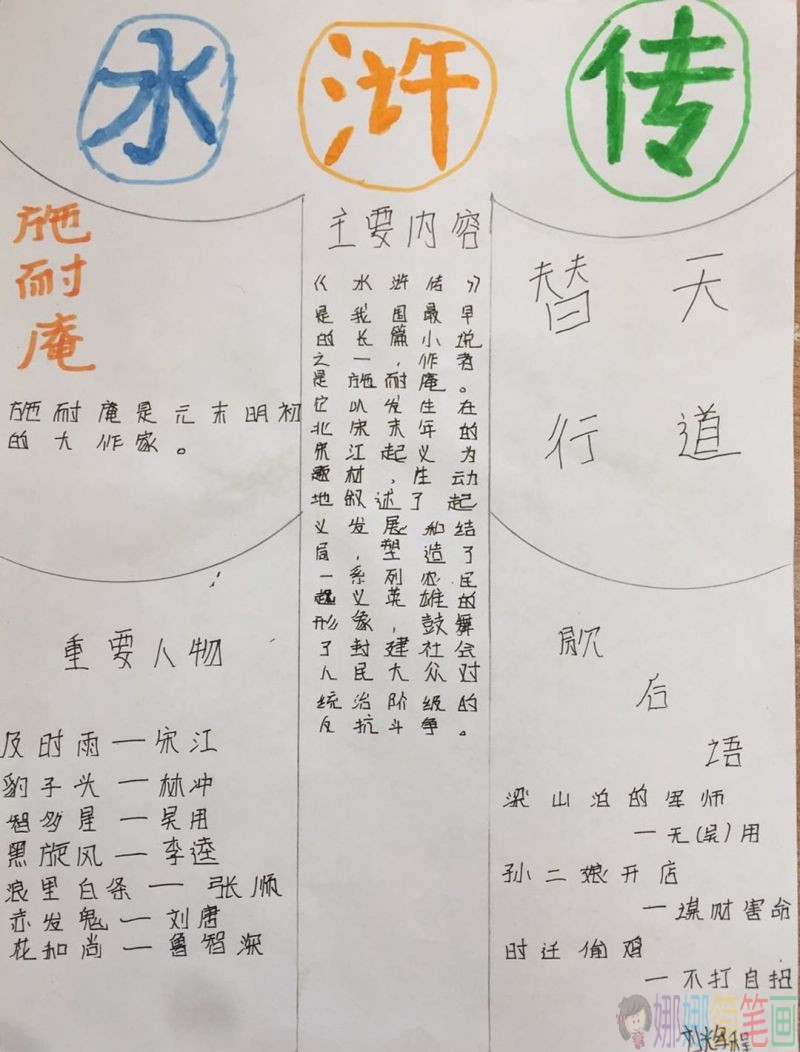 水浒传
施
耐
庵
施耐庵是元末明初
的大作家。
主要内容
《水浒传》
是我国最早
的长篇小说
之一，作者
是施耐庵。
它以发生在
北宋末年的
宋江起义为
题材，生动
地叙述了起
义发展和结
局，塑造了
一系列农民
起义英雄的
形象，鼓舞
了封建社会
人民大众对
统治阶级的
反抗斗争。
替天
行道
重要人物
及时雨—宋江
豹子头—林冲
智多星—吴用
黑旋风—李逵
浪里白条—张顺
赤发鬼—刘唐
花和尚—鲁智深
歇
后
语
梁山泊的军师
—无(吴)用
孙二娘开店
—谋财害命
时迁偷鸡
—不打自招
娜娜简笔画